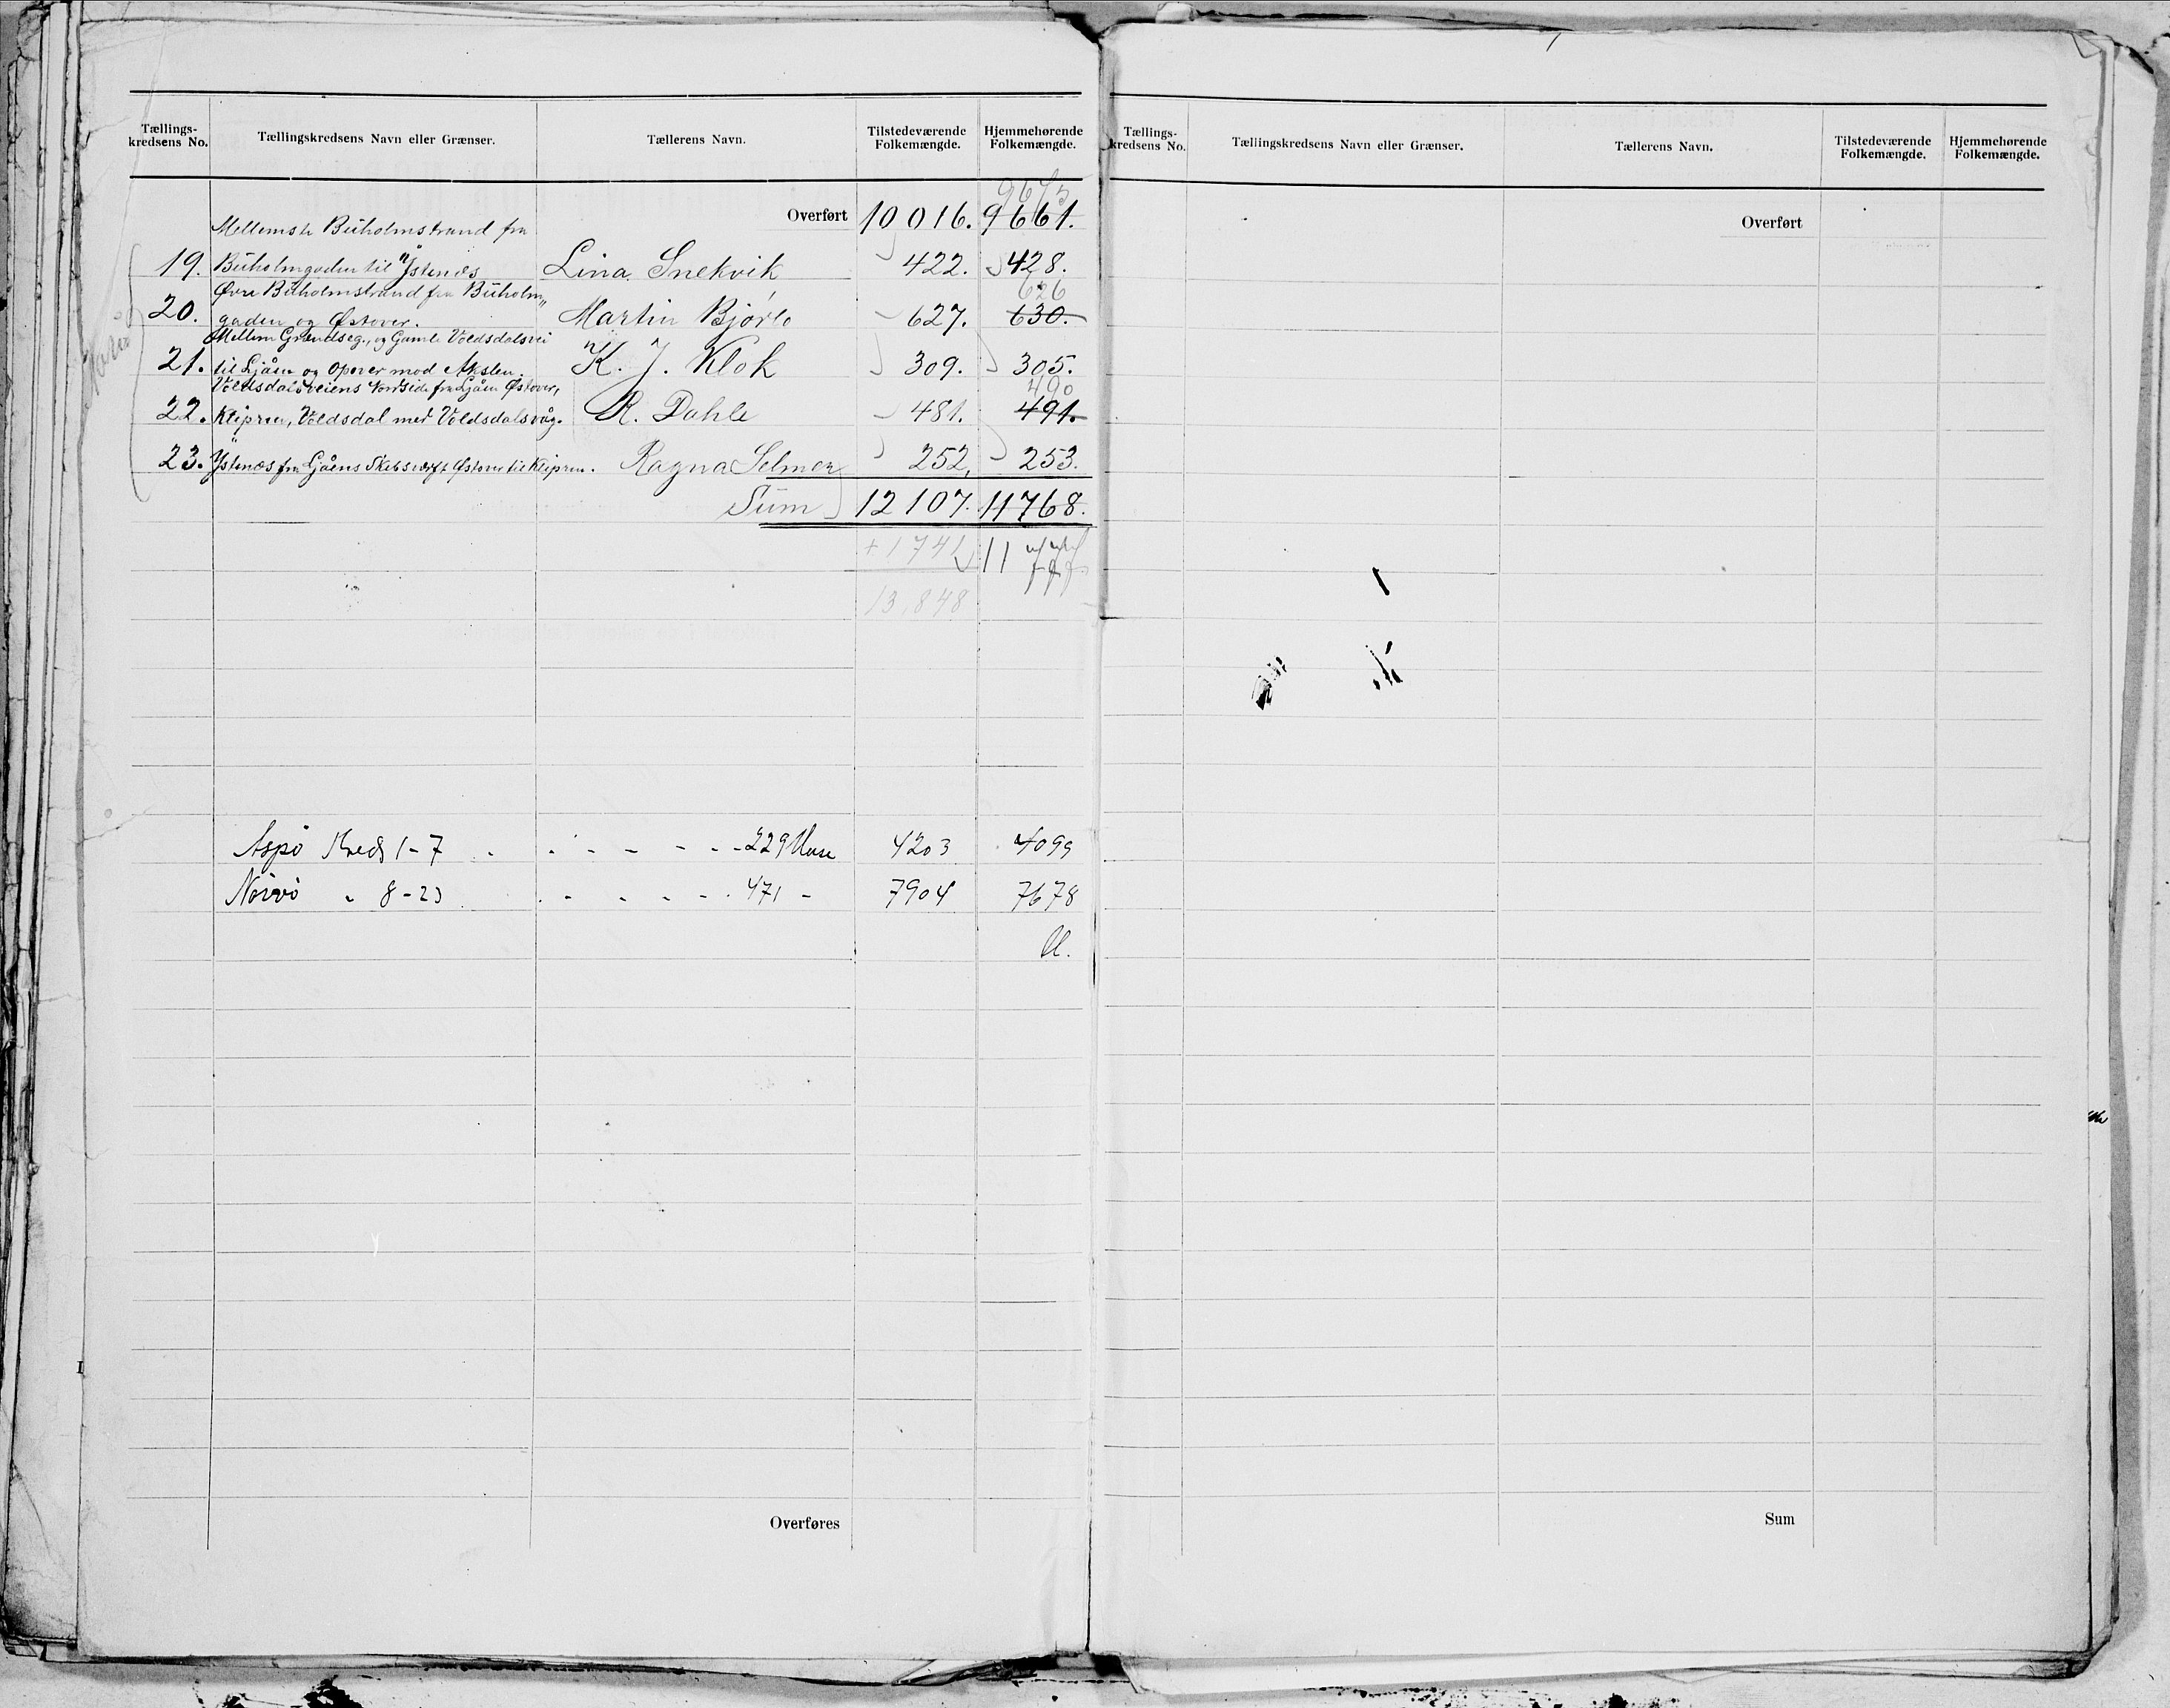 Tællings-
kredsens No.
Tællingskredsens Navn eller Grænser.
Tællerens Navn.
Tilstedeværende
Folkemængde.
Hjemmehørende
Folkemængde.
9675
Overført 10016. 9661.
Mellemste Buholmstrand fra
19. Buholmgaden til Ystenæs Lina Snekvik 422. 428.
Øvre Buholmstrand fra Buholm„
626
20. gaden og Østover. Martin Bjørlo 627. 630.
Mellem Grændseg., og Gamle Voldsdalsvei
21. til Ljåen og Opover mod Akslen. K. J. Klok 309. 305.
Voldsdalsveiens Nordside fra Ljåen Østover,
490
22. Klipren, Voldsdal med Voldsdalsvåg. R. Dahle 481. 491.
23. Ystenæs fra Ljåens Skibsverft Østover til Klipren. Ragna Selmer 252, 253.
Sum 12107. 11768.
+1741 11 777
13,848
Aspö Kreds 1-7 229 Huse 4203 4099
Nörvö " 8-23 471 - 7904 7678
Overføres
Tællings-
kredsens No.
Tællingskredsens Navn eller Grænser.
Tællerens Navn.
Tilstedeværende
Folkemængde.
Hjemmehørende
Folkemængde.
Overført
Sum